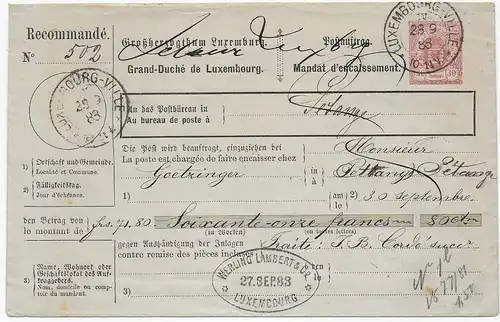 Recommandé.
N° 502
Großherzogthum Luxemburg. Postauftrag.
Grand-Duché de Luxembourg. Mandat d'encaissement.
LUXEMBOURG-VILLE
28 9
88
30
LUXEMBOURG-VILLE
28 9
88
An das Postbüreau in
Au bureau de poste à
Die Post wird beauftragt, einzuziehen bei
La poste est chargée de faire encaisser chez
Monsieur
Goetzinger in à Pettange Pétange
1) Ortschaft und Gemeinde.
Localité et Commune.
2) Fälligkeitstag.
Jour d'échéance.
1) am le 2) 30 septembre
den Betrag von
le montant de frs. 71.80 Soixante-onze francs 80 cts
(in Worten) (en toutes lettres)
gegen Aushändigung der Inlagen
contre remise des pièces incluses Traite: J. B. Cordé succr
3) Name, Wohnort oder
Geschäftslokal des Auftraggebers.
Nom, domicile ou comptoir du mandant.
3)
WERLING LAMBERT & Cie
27.SEP.88
LUXEMBOURG